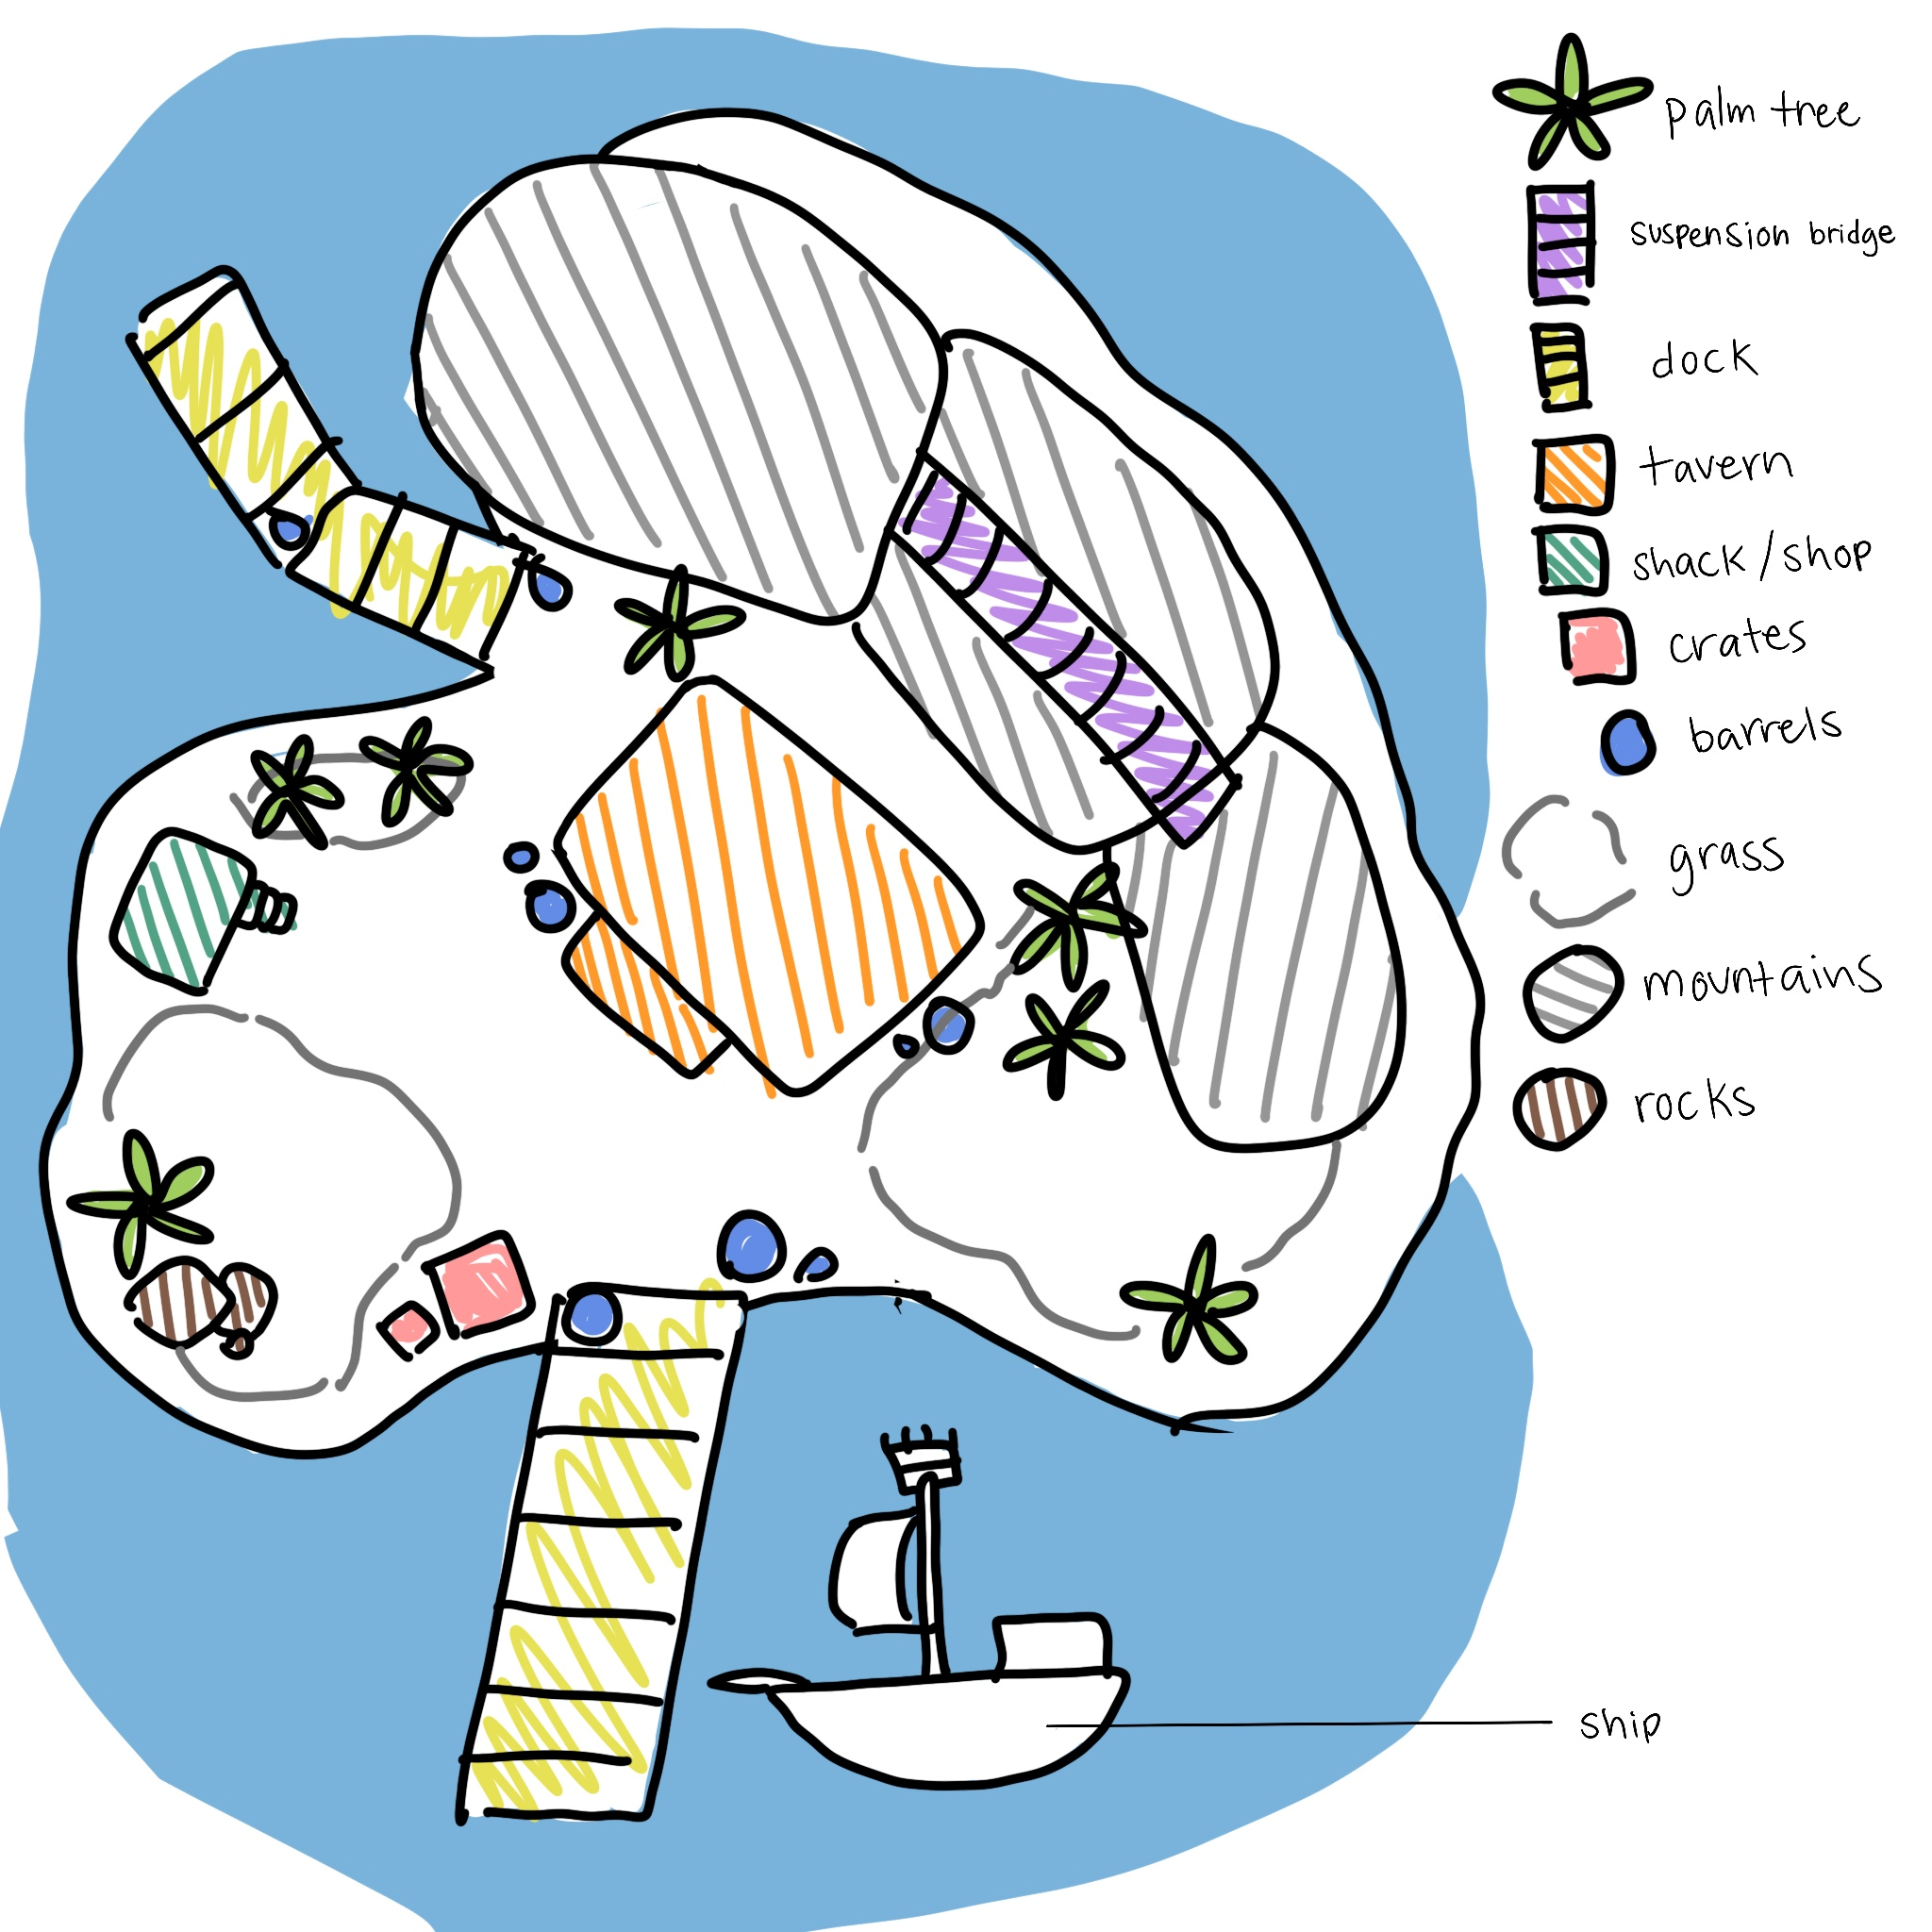 palm tree
suspension bridge
dock
tavern
shack/shop
crates
barrels
grass
mountains
rocks
ship